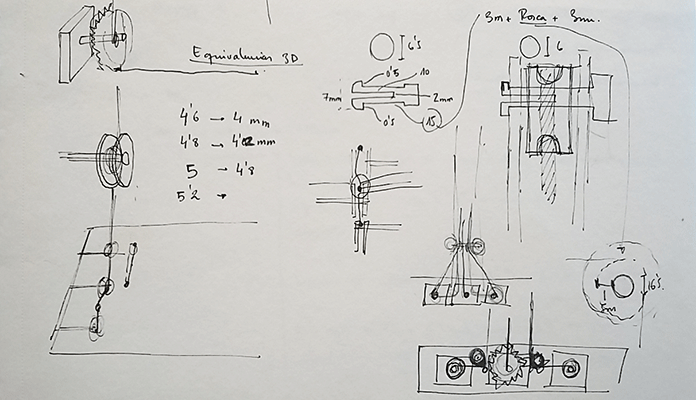 3m + Rosca + 3mm.
Equivalencias 3D
6'5
6
0'5
10
7mm
2mm
0'5
15
4'6 → 4 mm
4'8 → 4'2 mm
5 → 4'8
5'2 →
16'5
5m